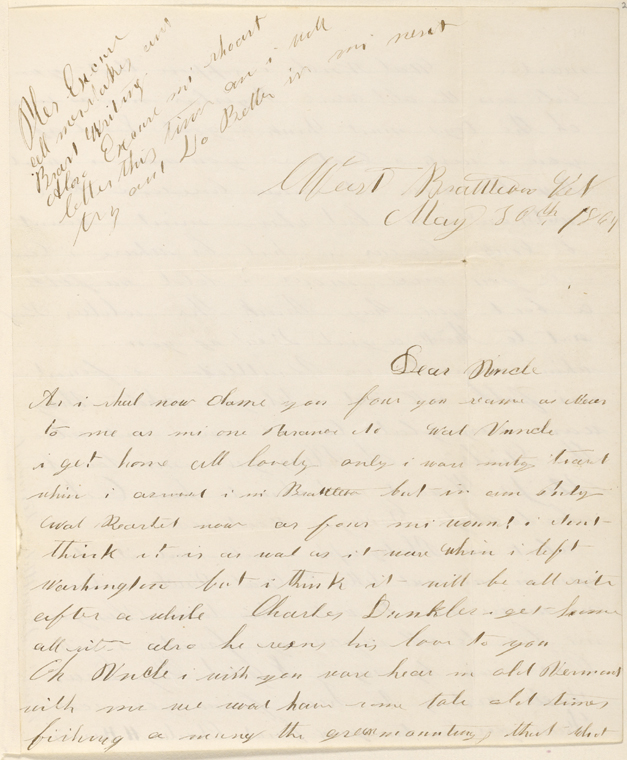 Ples Excuse
all mistakes and
Brart Writing.
Also Excuse mi sheart
letter this time an i will
try and Do Better in mi next
West Brattleboro
May 30th 1864
Dear Nuncle
As i shal now Clame you four you seame as Near
to me as mi one Wal Nuncle
i got home all lovely only i ware mity tiard
whin i arived i mi Brattleboro but im am
wal Rested now as four mi wound i dont
think it is as wal as it ware whin i left
Washington but i think it will be all rite
after a while Charles Dunkler get home
all rite also he sens his love to you
Oh Nuncle i wish you ware hear in old Vermont
with me we wod have some tale old times
fishing a mung the greanmountins that what